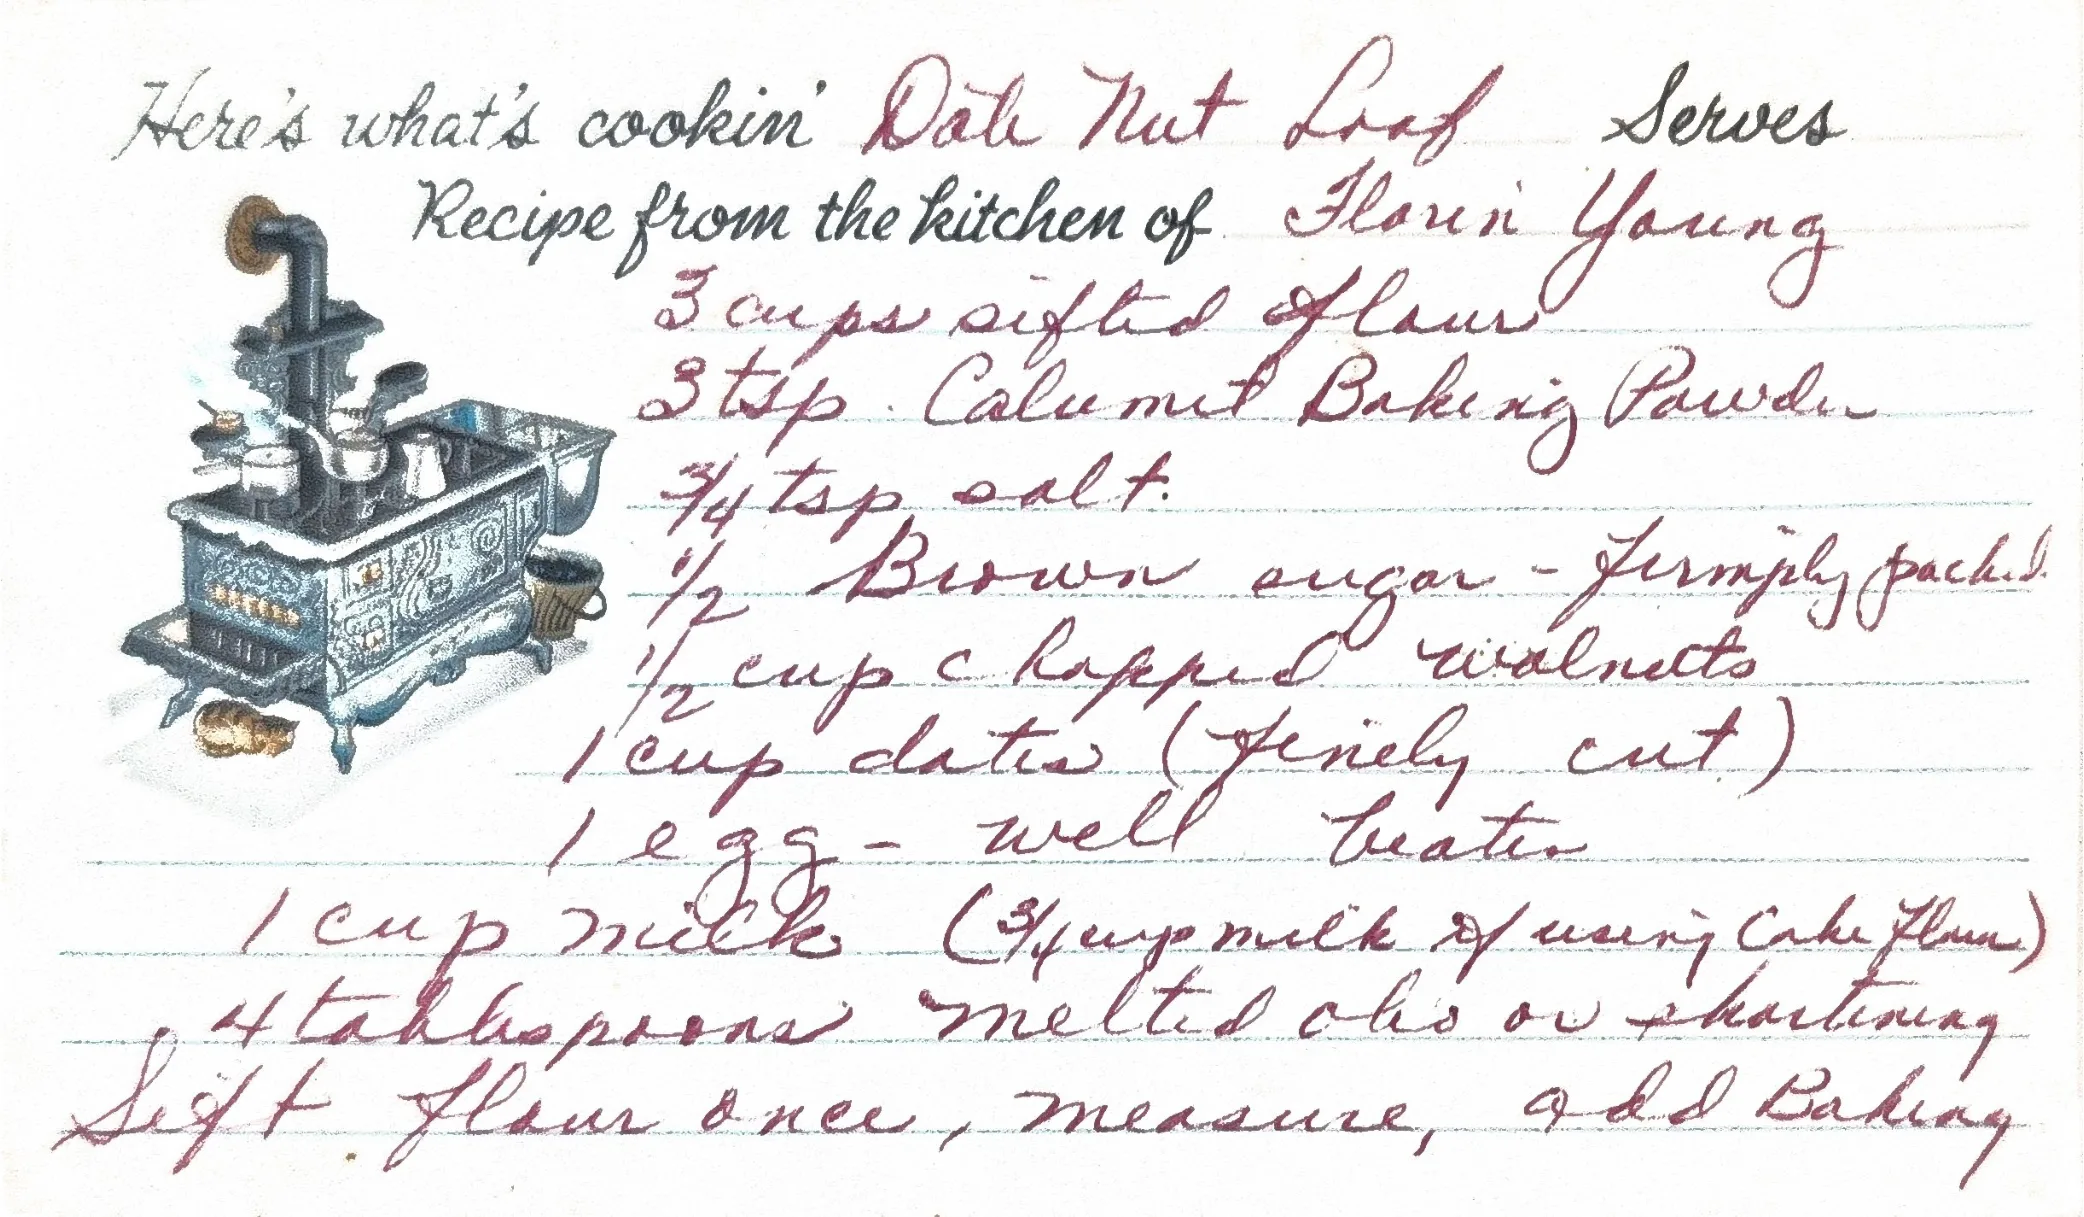 Here's what's cookin' Date Nut Loaf Serves
Recipe from the kitchen of Florin Young
3 cups sifted flour
3 tsp. Calumet Baking Powder
3/4 tsp salt.
1/2 Brown sugar - firmply packed.
1/2 cup chopped walnuts
1 cup dates (finely cut)
1 egg - well beaten
1 cup milk (3/4 cup milk if using Cake flour)
4 tablespoons melted oleo or shortening
Sift flour once, measure, add Baking